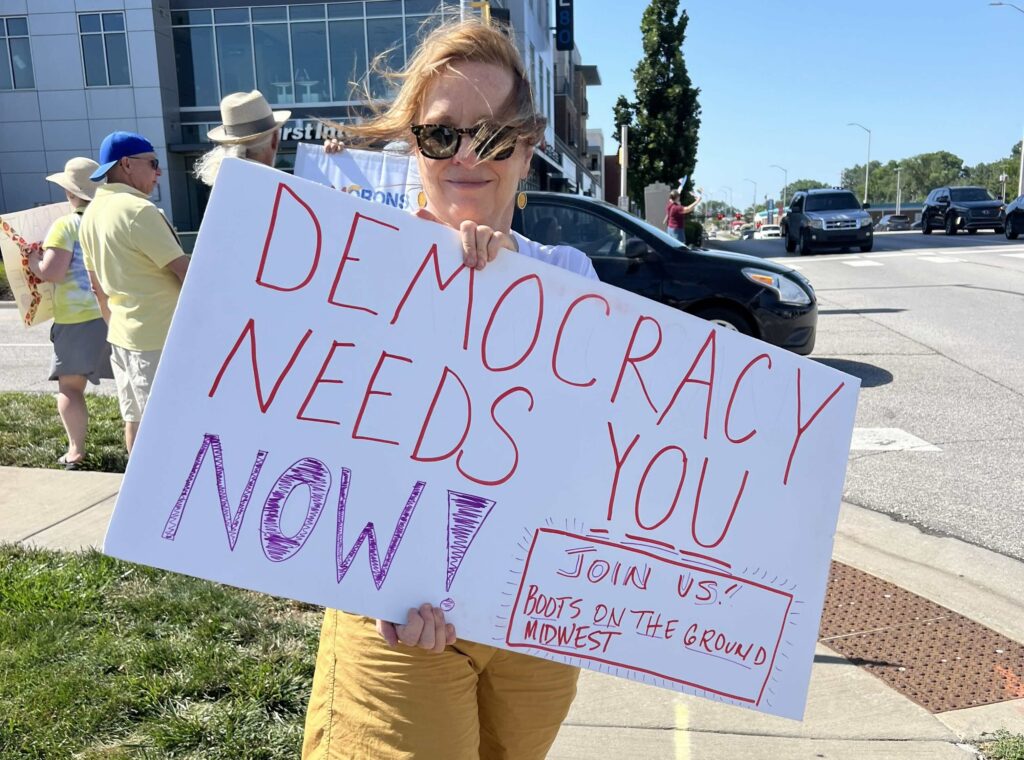 DEMOCRACY
NEEDS YOU
NOW!
JOIN US!!
BOOTS ON THE GROUND
MIDWEST
MORONS